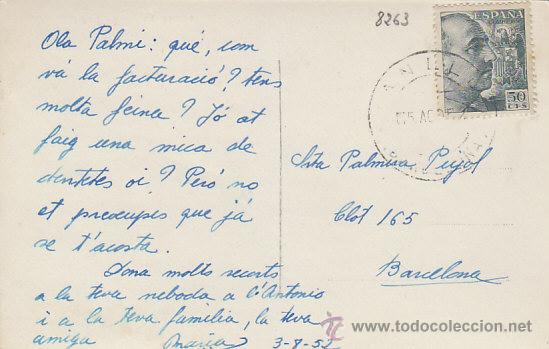 8263
ESPAÑA
50
CTS
Ola Palmi: qué, com
vá la facturació? tens
molta feina? Jó at
faig una mica de
dentetes oi? Peró no
et preocupis que já
se t'acosta.
Dona molts recorts
a la teva neboda a l'Antonio
i a la teva familia, la teva
amiga Maria 3-8-52
Srta Palmira Pujol
Clot 165
Barcelona
www.todocoleccion.net